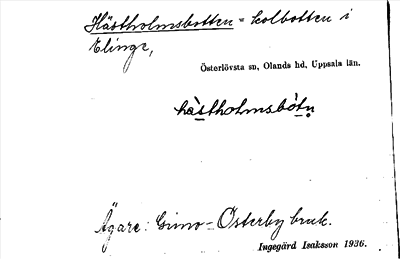 Hästholmsbotten = kolbotten i
Elinge,
Österlövsta sn, Olands hd, Uppsala län.
hàstholmsbòtn̥
Ägare: Gimo-Österby bruk.
Ingegärd Isaksson 1936.